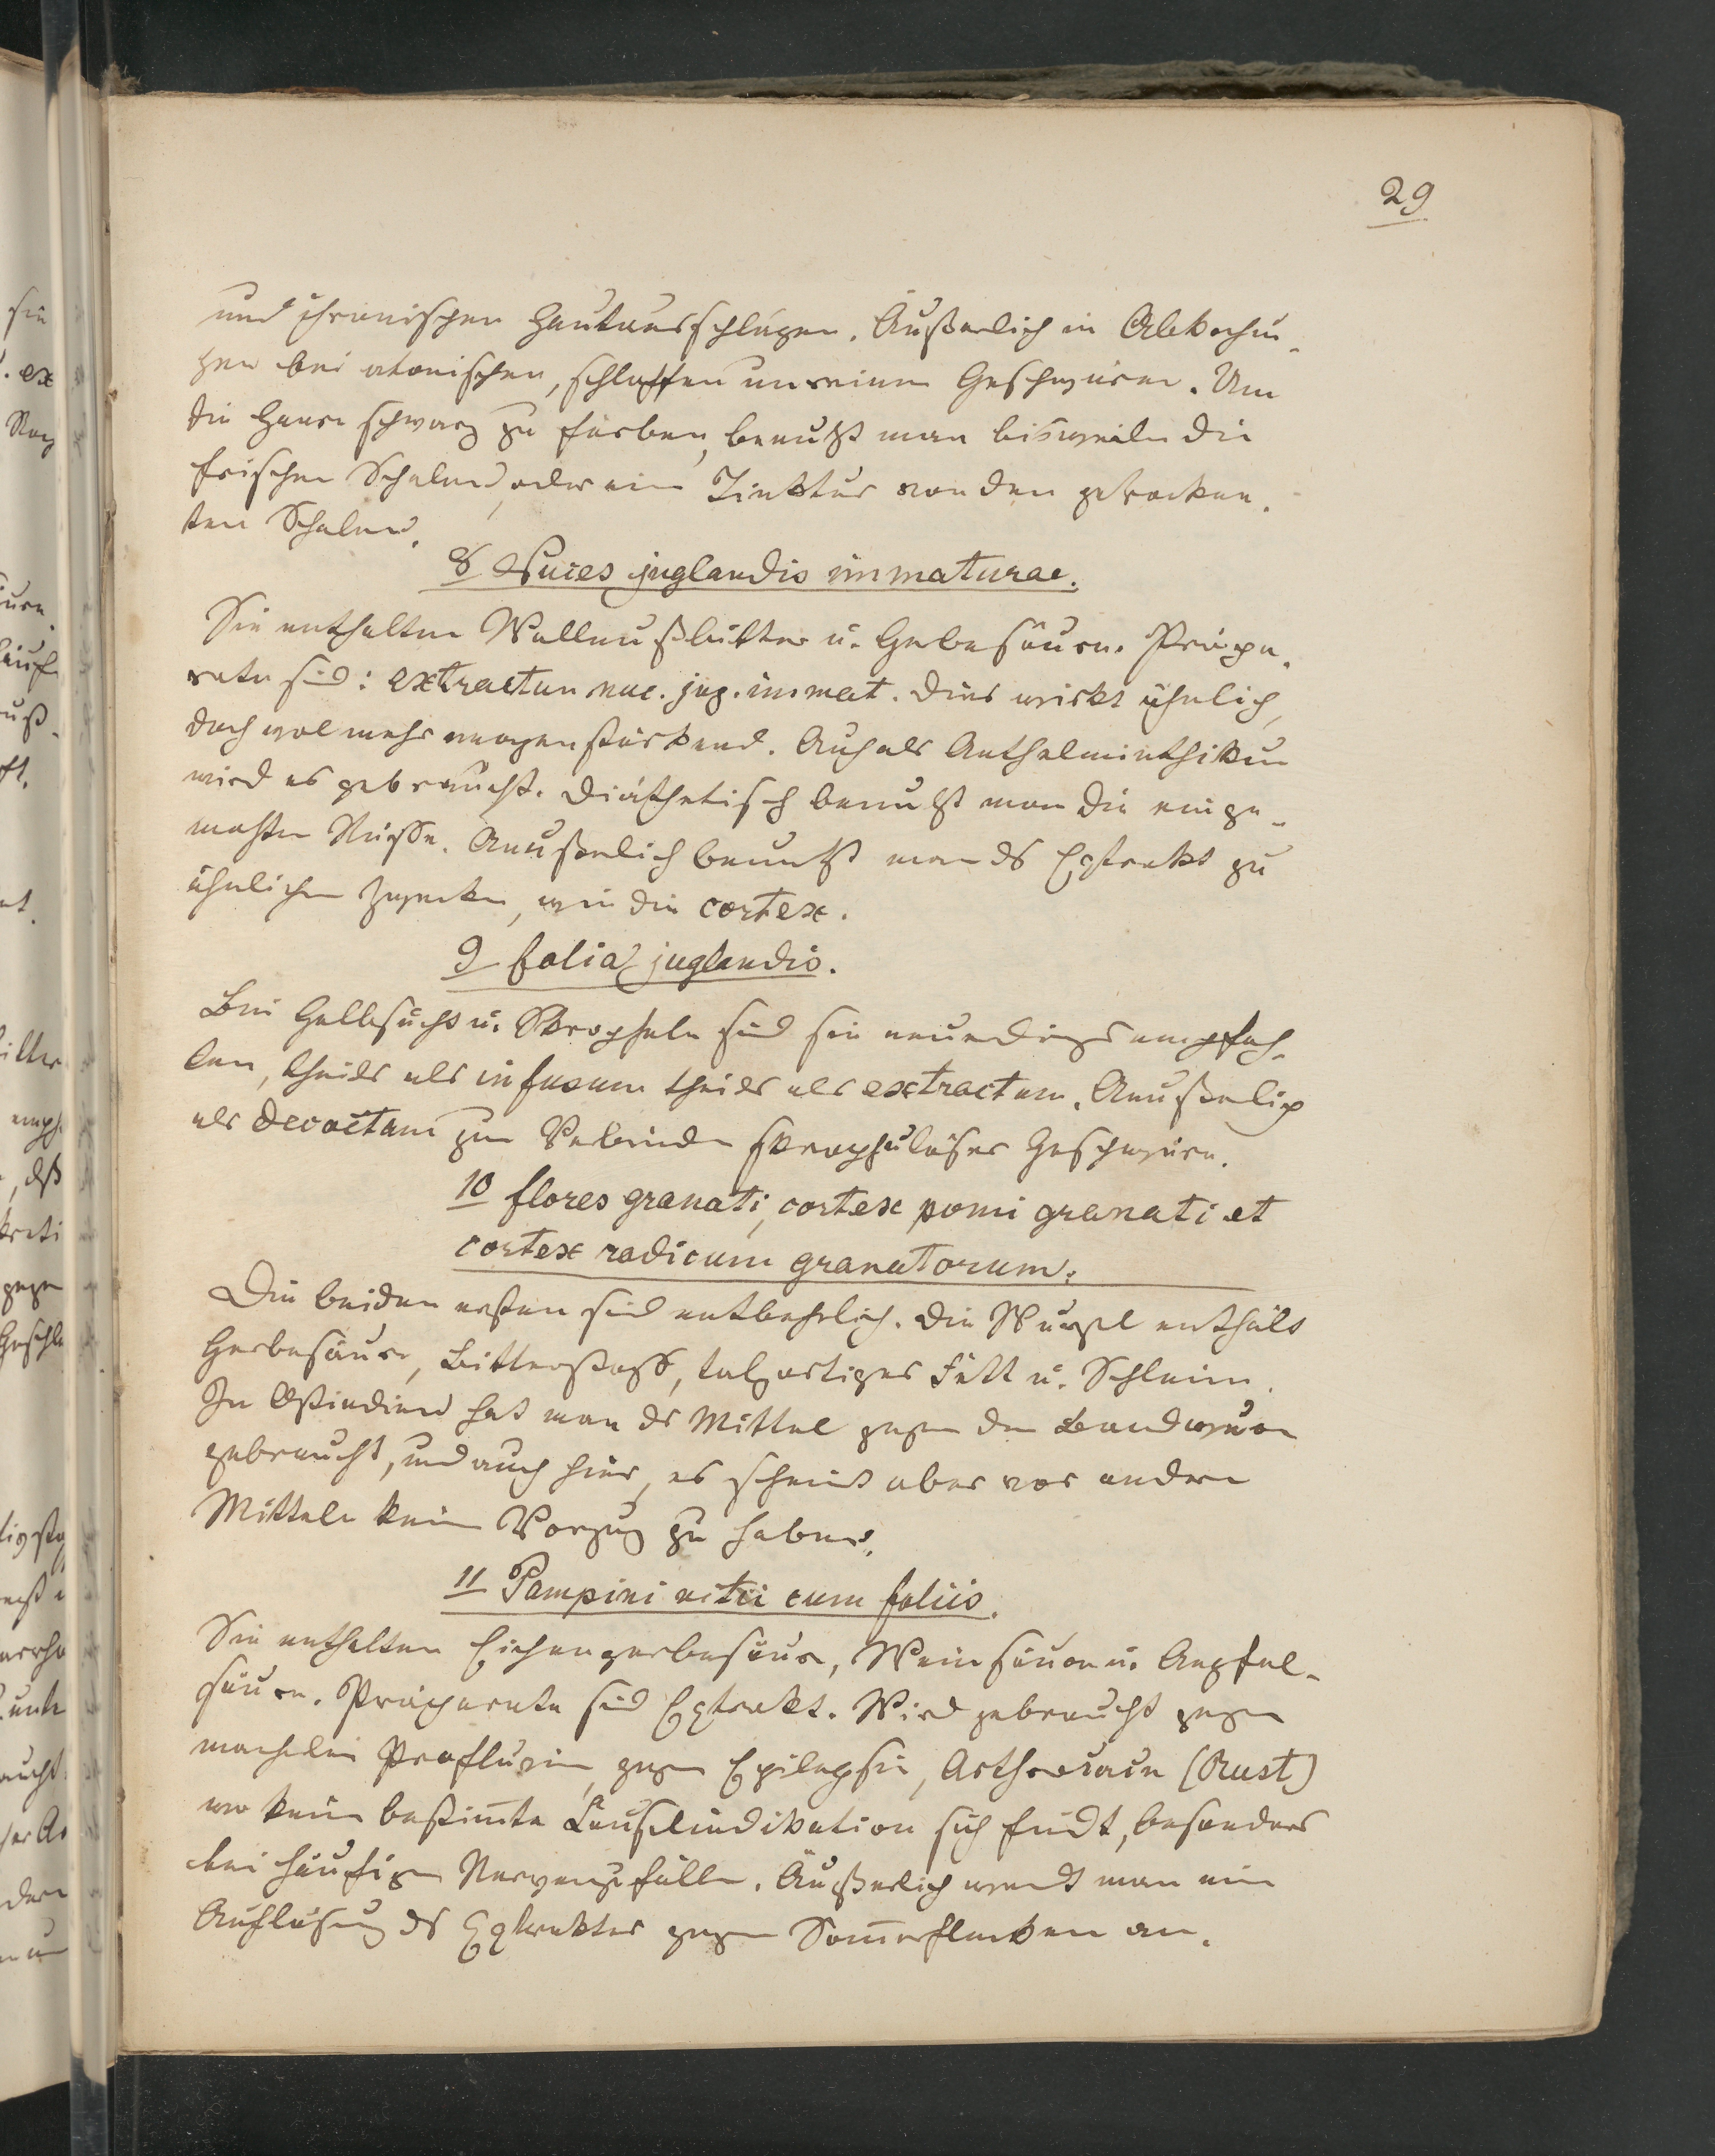 29
und chronischen Hautausschlägen. Äußerlich in Abkochun-
gen bei atonischen, schlaffen unreinen Geschwüren. Um
die Haare schwarz zu färben, benutzt man bisweilen die
frischen Schalen, oder eine Tinktur von den getrockne-
ten Schalen.
8 Nuces juglandis immaturae.
Sie enthalten Wallnußbitter u. Gerbesäure. Präpa-
rate sind: extractum nuc. jug. immat. Dies wirkt ähnlich,
doch wol mehr magenstärkend. Auch als Anthelminthikum
wird es gebraucht. Diäthetisch benutzt man die einge-
machten Nüsse. Aeußerlich benutzt man ds Extrakt zu
ähnlichen Zwecken, wie die cortex.
9 folia juglandis.
Bei Gelbsucht u. Skropheln sind sie neuerdings empfoh-
len, theils als infusum theils als extractum. Aeußerlich
als decoctum zum Verbinden skrophulöser Geschwüre.
10 flores granati, cortex pomi granati et
cortex radicum granatorum.
Die beiden ersten sind entbehrlich. Die Wurzel enthält
Gerbesäure, Bitterstoff, talgartiges Fett u. Schleim.
In Ostindien hat man ds Mittel gegen den Bandwurm
gebraucht, und auch hier, es scheint aber vor andern
Mitteln kein Vorzug zu haben.
11 Pampini vitii cum foliis.
Sie enthalten Eichengerbesäure, Weinsäure u. Aepfel-
säure. Präparate sind Extrakt. Wird gebraucht gegen
mancherlei Profluvien, gegen Epilepsie, (Rust)
wo keine bestimte Causalindikation sich findt, besonders
bei häufigen Nervenzufällen. Äußerlich wendt man eine
Auflösung ds Extraktes gegen Somerflecken an.